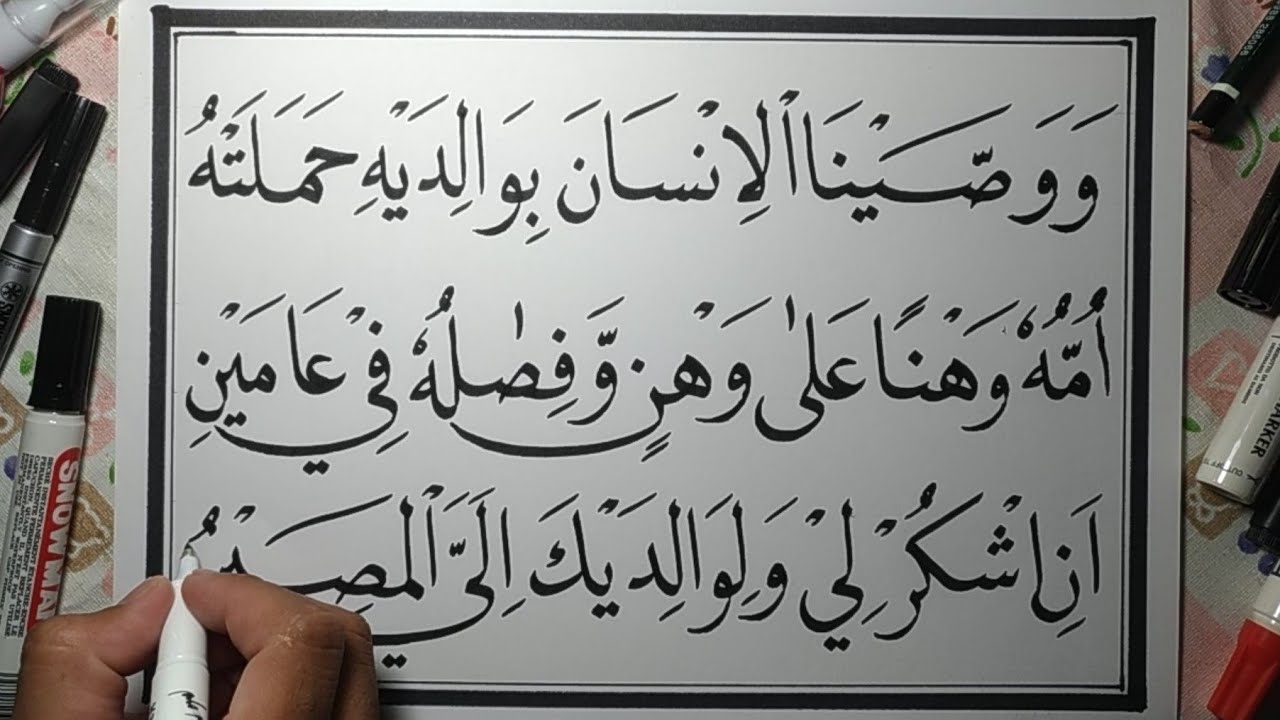 وَوَصَّيْنَا ٱلْاِنْسَانَ بِوَالِدَيْهِ حَمَلَتْهُ
اُمُّهٗ وَهْنًا عَلٰى وَهْنٍ وَّفِصٰلُهٗ فِيْ عَامَيْنِ
اَنِ اشْكُرْ لِيْ وَلِوَالِدَيْكَ اِلَيَّ الْمَصِيْرُ
SNOWMAN
MARKER